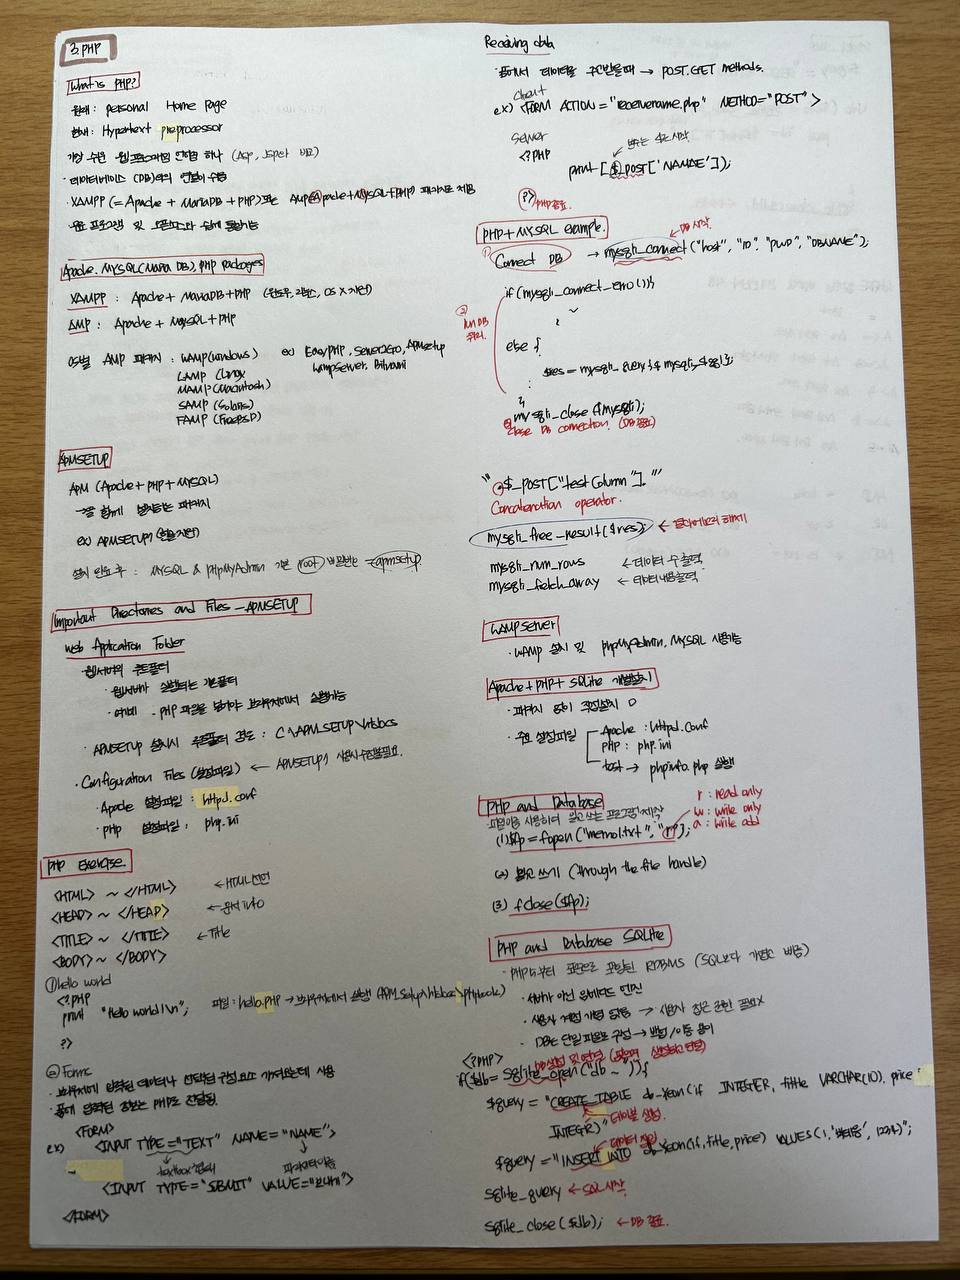 3. PHP
What is PHP?
원래 : personal Home Page
현재 : Hypertext preprocessor
가장 쉬운 웹 프로그래밍 언어중 하나 (Asp, Jsp보다
· 데이터베이스 (DB)와의 연결이 수월
· XAMPP (= Apache + MariaDB + PHP)또는 AMP(Apache+MySQL+PHP) 패키지로 제공
Apache. MySQL(Maria DB), PHP packages
XAMPP : Apache + MariaDB + PHP (윈도우, 리눅스, OS X 지원)
AMP : Apache + MySQL + PHP
OS별 AMP 패키지 : WAMP(windows) ex) EasyPHP, Server2Go, APMsetup
LAMP (Linux) WampServer, Bitnami
MAMP(Macintosh)
SAMP (Solaris)
FAMP (FreeBSD)
APMSETUP
APM (Apache + PHP + MySQL)
ex) APMSETUP7 (한글지원)
설치 완료 후 : MySQL & PHPMyAdmin 기본 root 비밀번호 = apmsetup
Important Directories and Files - APMSETUP
Web Application Folder
· 웹서버의 루트폴더
· 웹서버가 실행되는 기본폴더
· APMSETUP 설치시 루트폴더 경로 : C:\APM_SETUP\htdocs
· Configuration Files (설정파일) ← APMSETUP7 사용시 수정불필요.
· Apache 설정파일 : httpd.conf
· PHP 설정파일 : php.ini
PHP Exercise.
<HTML> ~ </HTML> ← HTML 선언
<HEAD> ~ </HEAD> ← 문서 info
<TITLE> ~ </TITLE> ← Title
<BODY> ~ </BODY>
① hello world
<?PHP
print "Hello world!\n"; 파일 : hello.PHP → 브라우저에서 실행 (APM_Setup\htdocs\phpbook)
?>
② Form
· 브라우저에 입력된 데이터나 선택된 구성요소 가져오는데 사용
· 폼에 입력된 정보는 PHP로 전달됨.
<FORM>
ex) <INPUT TYPE="TEXT" NAME="NAME">
<INPUT TYPE="SUBMIT" VALUE="보내기">
</FORM>
Receiving data
· 폼에서 데이터를 전달받을때 → POST.GET methods.
client
ex) <FORM ACTION="receivename.php" METHOD="POST">
server
<?PHP
변수는 $로 시작.
print [$_post['NAMAE']);
?> PHP종료.
PHP + MySQL example.
DB 시작
① Connect DB → mysqli_connect ("host", "ID", "PWD", "DBNAME");
② Run DB 쿼리.
if (mysqli_connect_errno()){
~
}
else {
$res = mysqli_query($mysqli, $sql);
:
};
mysqli_close($mysqli);
③ Close DB connection. (DB종료)
"' . $_POST["testColumn"]. '"
Concatenation operator.
mysqli_free_result($res); ← 결과메모리 해제
mysqli_num_rows ← 데이터 수 출력
mysqli_fetch_array ← 데이터 내용출력
WAMPserver
· WAMP 설치 및 phpMyAdmin, MySQL 사용가능
Apache + PHP + SQlite 개별설치
· 패키지 없이 직접설치 O
· 주요 설정파일 Apache : httpd.conf
PHP : php.ini
test → phpinfo.php 실행
PHP and Database
r : read only
w : write only
a : write add
(1) $fp = fopen ("memo1.txt", "r");
(2) 읽고 쓰기 (through the file handle)
(3) fclose($fp);
PHP and Database SQLite
· PHP5부터 표준으로 포함된 RDBMS (SQL보다 가볍고 빠름)
· 서버가 아닌 임베디드 엔진
· DB는 단일 파일로 구성 → 백업/이동 용이
<?PHP>
if($db = sqlite_open("db ~ ")){
$query = "CREATE TABLE db_Yeon(if INTEGER, title VARCHAR(10), price
INTEGR)" 테이블 생성.
데이터 삽입
$query = "INSERT INTO db_Yeon(if, title, price) VALUES (1, '싸티융', 1234)";
sqlite_query ← SQL 시작
sqlite_close ($db); ← DB 종료.